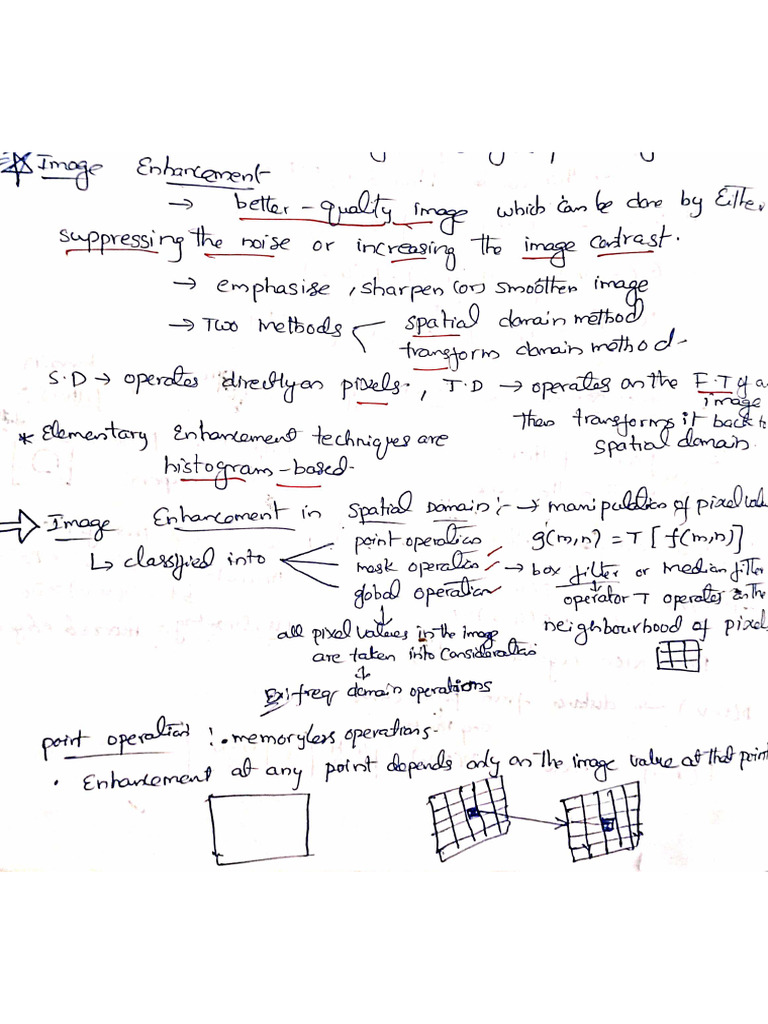 Image Enhancement
→ better-quality image which can be done by Either
suppressing the noise or increasing the image contrast.
→ emphasise, sharpen (or) smoothen image
→ Two methods spatial domain method
transform domain method.
S.D → operates directly on pixels. , T.D → operates on the F.T of a
image
then transforms it back to
spatial domain.
* Elementary Enhancement techniques are
histogram-based.
⇒ Image Enhancement in Spatial Domain :- → manipulation of pixel val
↳ classified into
point operation g(m,n) = T [f(m,n)]
mask operation → box filter or median filter
global operation operator T operates on the
neighbourhood of pixels
all pixel values in the image
are taken into consideration
Ex: freq domain operations
point operation : • memoryless operations.
• Enhancement at any point depends only on the image value at that point